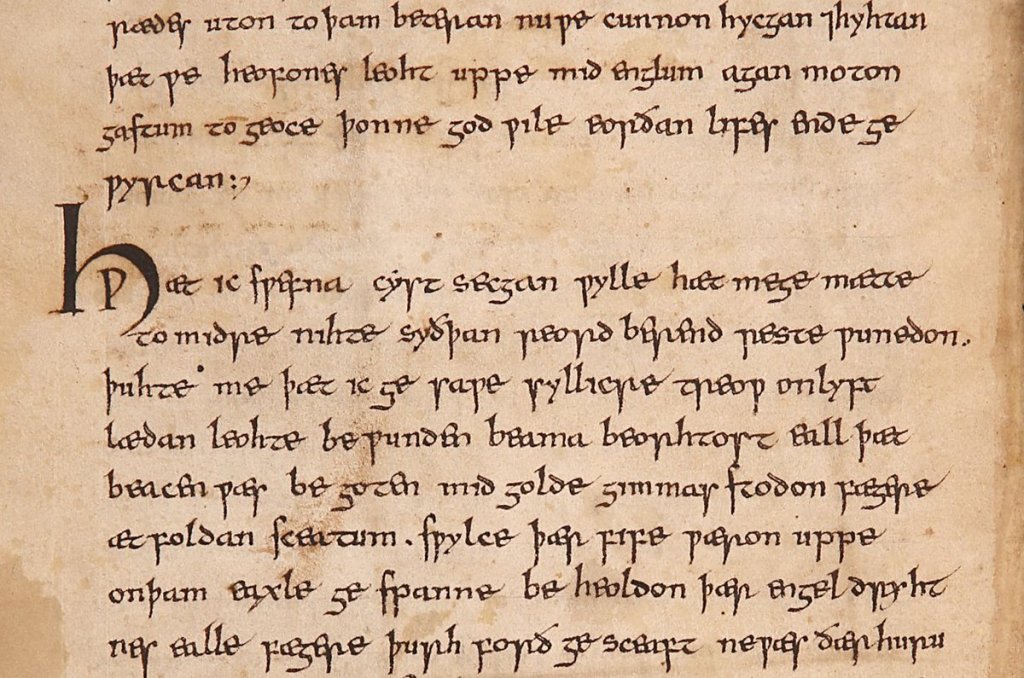 rædes uton to þam beteran nu ƿe cunnon hycgan ⁊ hyhtan
þæt ƿe heofones leoht uppe mid englum agan moton
gastum to geoce þonne god ƿile eorðan lifes ende ge
ƿyrcan:,
Hƿæt ic sƿefna cyst secgan ƿylle hæt mege mætte
to midre nihte syðþan reord berend reste ƿunedon.
þuhte me þæt ic ge saƿe syllicre treoƿ on lyft
lædan leohte be ƿunden beama beorhtost eall þæt
beacen ƿæs be goten mid golde gimmas stodon fægere
æt foldan sceatum. sƿylce þær fife ƿæron uppe
on þam eaxle ge spanne be heoldon þær engel dryht
nes ealle fægere þurh forð ge sceaft ne ƿæs ðær huru